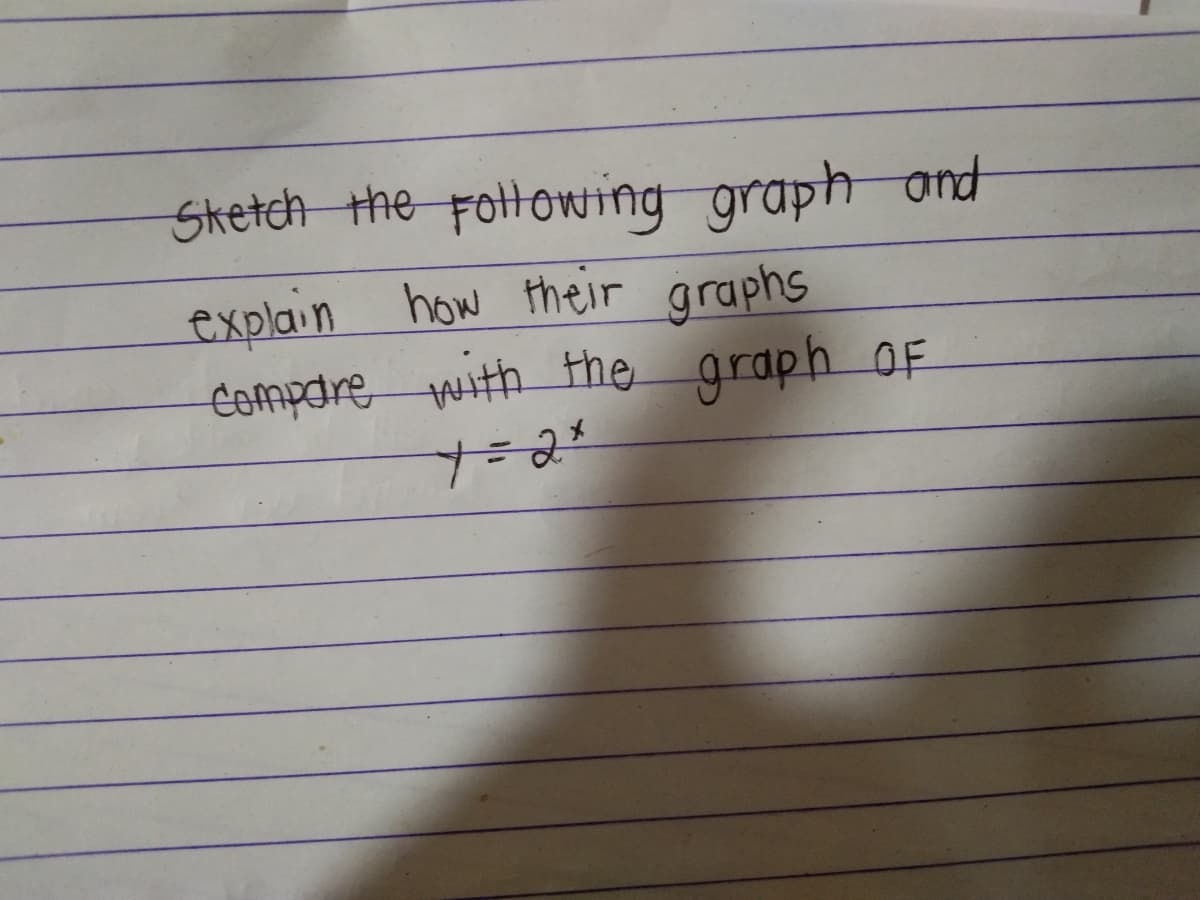 Sketch the Following graph and
explain how their graphs
compare with the graph OF
y = 2ˣ